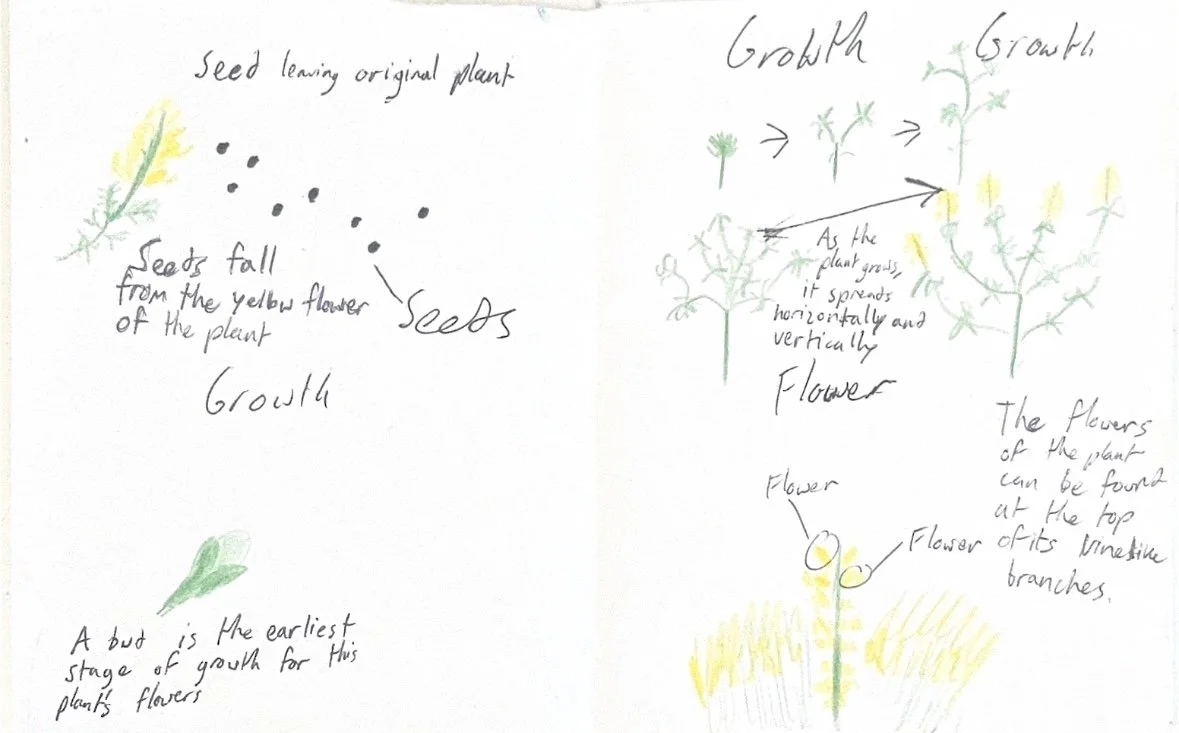 Seed leaving original plant
Seeds fall
from the yellow flower
of the plant
Seeds
Growth
A bud is the earliest
stage of growth for this
plant's flowers
Growth
Growth
As the
plant grows,
it spreads
horizontally and
vertically
Flower
The flowers
of the plant
can be found
at the top
of its vinelike
branches.
Flower
Flower